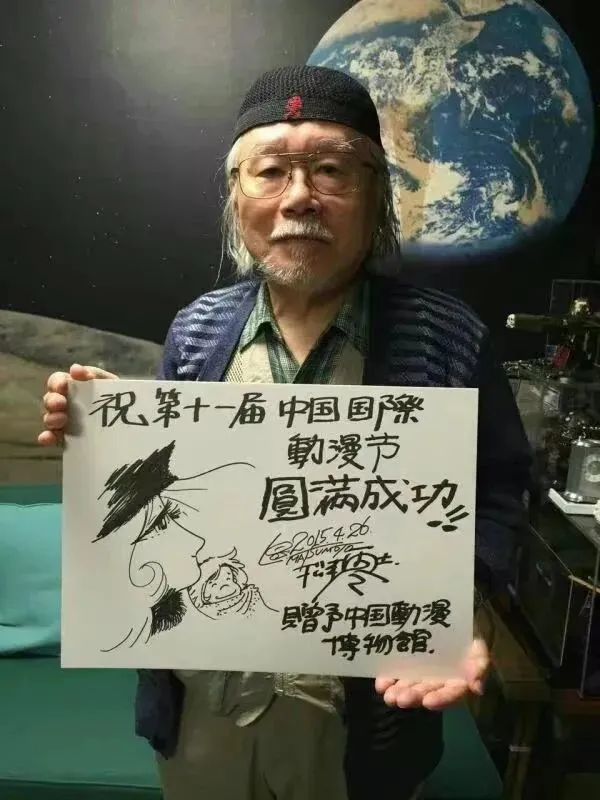 祝第十一届中国国際
動漫节
圓満成功!!
2015.4.26
MATSUMOTO
松本零士
贈予中国動漫
博物館.